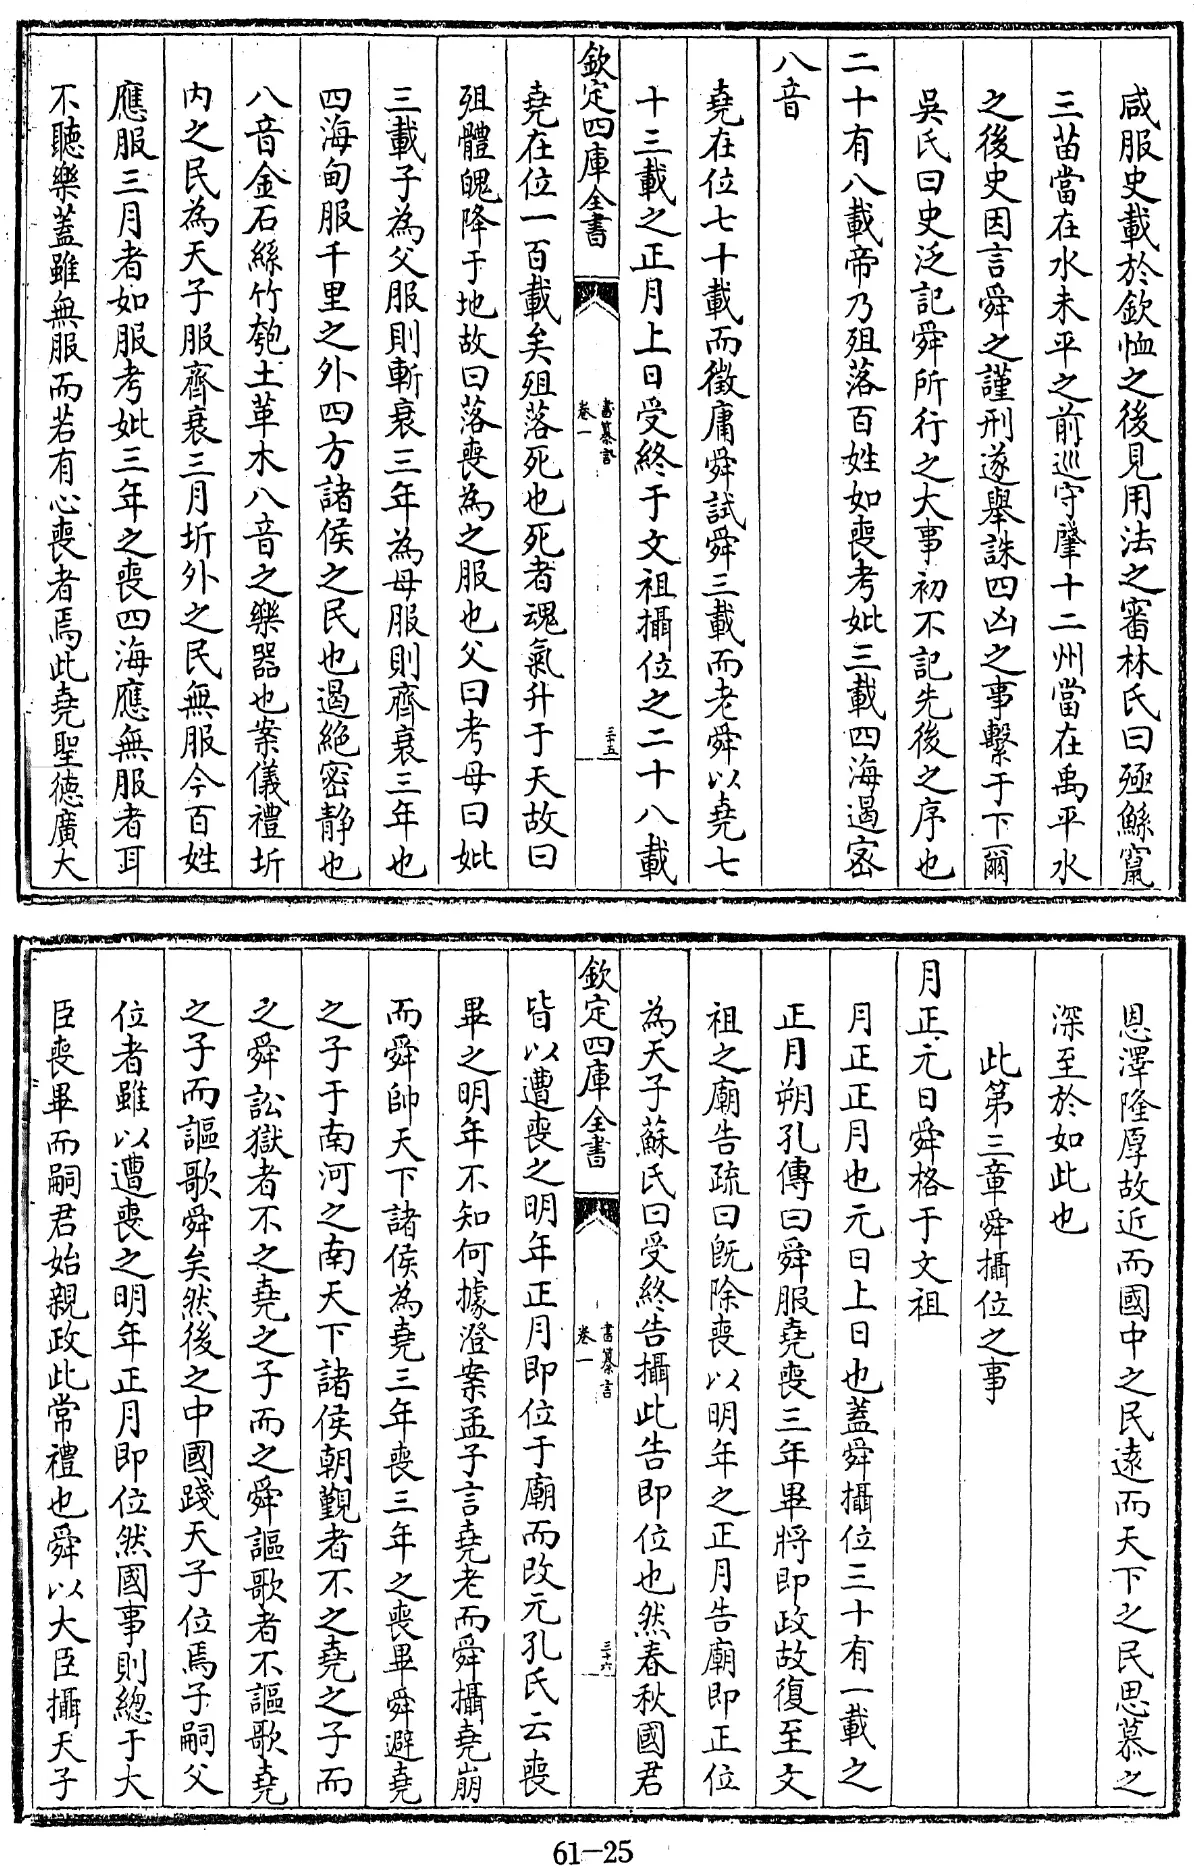 咸服史載於欽恤之後見用法之審林氏曰殛鯀竄
三苗當在水未平之前巡守肇十二州當在禹平水
之後史因言舜之謹刑遂舉誅四凶之事繫于下爾
吳氏曰史泛記舜所行之大事初不記先後之序也
二十有八載帝乃殂落百姓如喪考妣三載四海遏密
八音
堯在位七十載而徵庸舜試舜三載而老舜以堯七
十三載之正月上日受終于文祖攝位之二十八載
欽定四庫全書
書纂言
卷一
三十五
堯在位一百載矣殂落死也死者魂氣升于天故曰
殂體魄降于地故曰落喪為之服也父曰考母曰妣
三載子為父服則斬衰三年為母服則齊衰三年也
四海甸服千里之外四方諸侯之民也遏絕密靜也
八音金石絲竹匏土革木八音之樂器也案儀禮圻
內之民為天子服齊衰三月圻外之民無服今百姓
應服三月者如服考妣三年之喪四海應無服者耳
不聽樂蓋雖無服而若有心喪者焉此堯聖德廣大
恩澤隆厚故近而國中之民遠而天下之民思慕之
深至於如此也
此第三章舜攝位之事
月正元日舜格于文祖
月正正月也元日上日也蓋舜攝位三十有一載之
正月朔孔傳曰舜服堯喪三年畢將即政故復至文
祖之廟告疏曰既除喪以明年之正月告廟即正位
為天子蘇氏曰受終告攝此告即位也然春秋國君
欽定四庫全書
書纂言
卷一
三十六
皆以遭喪之明年正月即位于廟而改元孔氏云喪
畢之明年不知何據澄案孟子言堯老而舜攝堯崩
而舜帥天下諸侯為堯三年喪三年之喪畢舜避堯
之子于南河之南天下諸侯朝覲者不之堯之子而
之舜訟獄者不之堯之子而之舜謳歌者不謳歌堯
之子而謳歌舜矣然後之中國踐天子位焉子嗣父
位者雖以遭喪之明年正月即位然國事則總于大
臣喪畢而嗣君始親政此常禮也舜以大臣攝天子
61-25